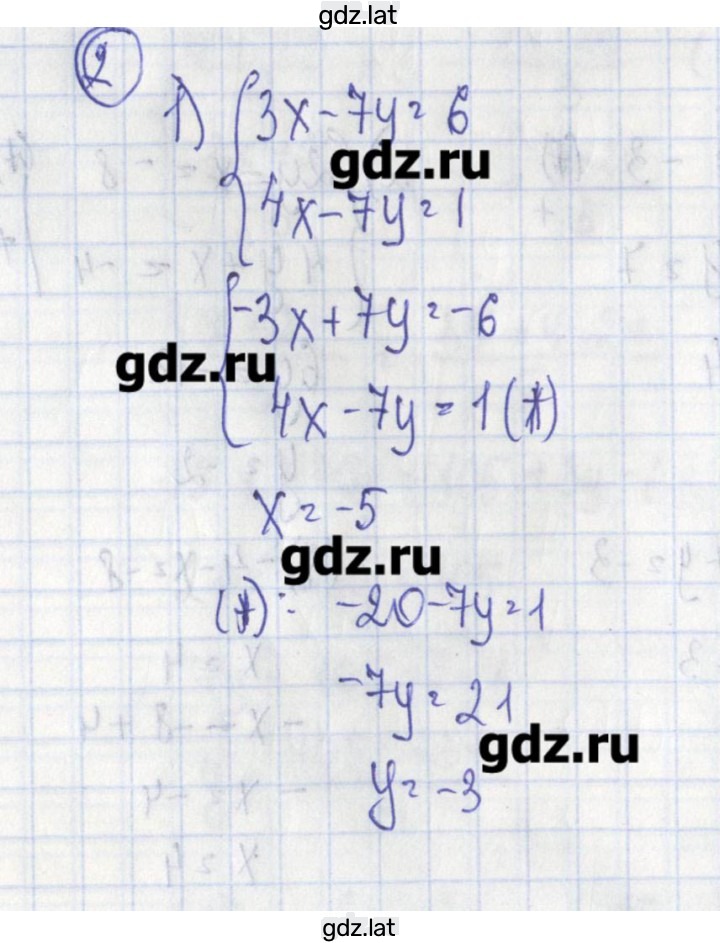 gdz.lat
2
1) { 3x - 7y = 6
gdz.ru
4x - 7y = 1
{ -3x + 7y = -6
gdz.ru
4x - 7y = 1 (*)
x = -5
gdz.ru
(*): -20 - 7y = 1
-7y = 21
gdz.ru
y = -3
gdz.lat